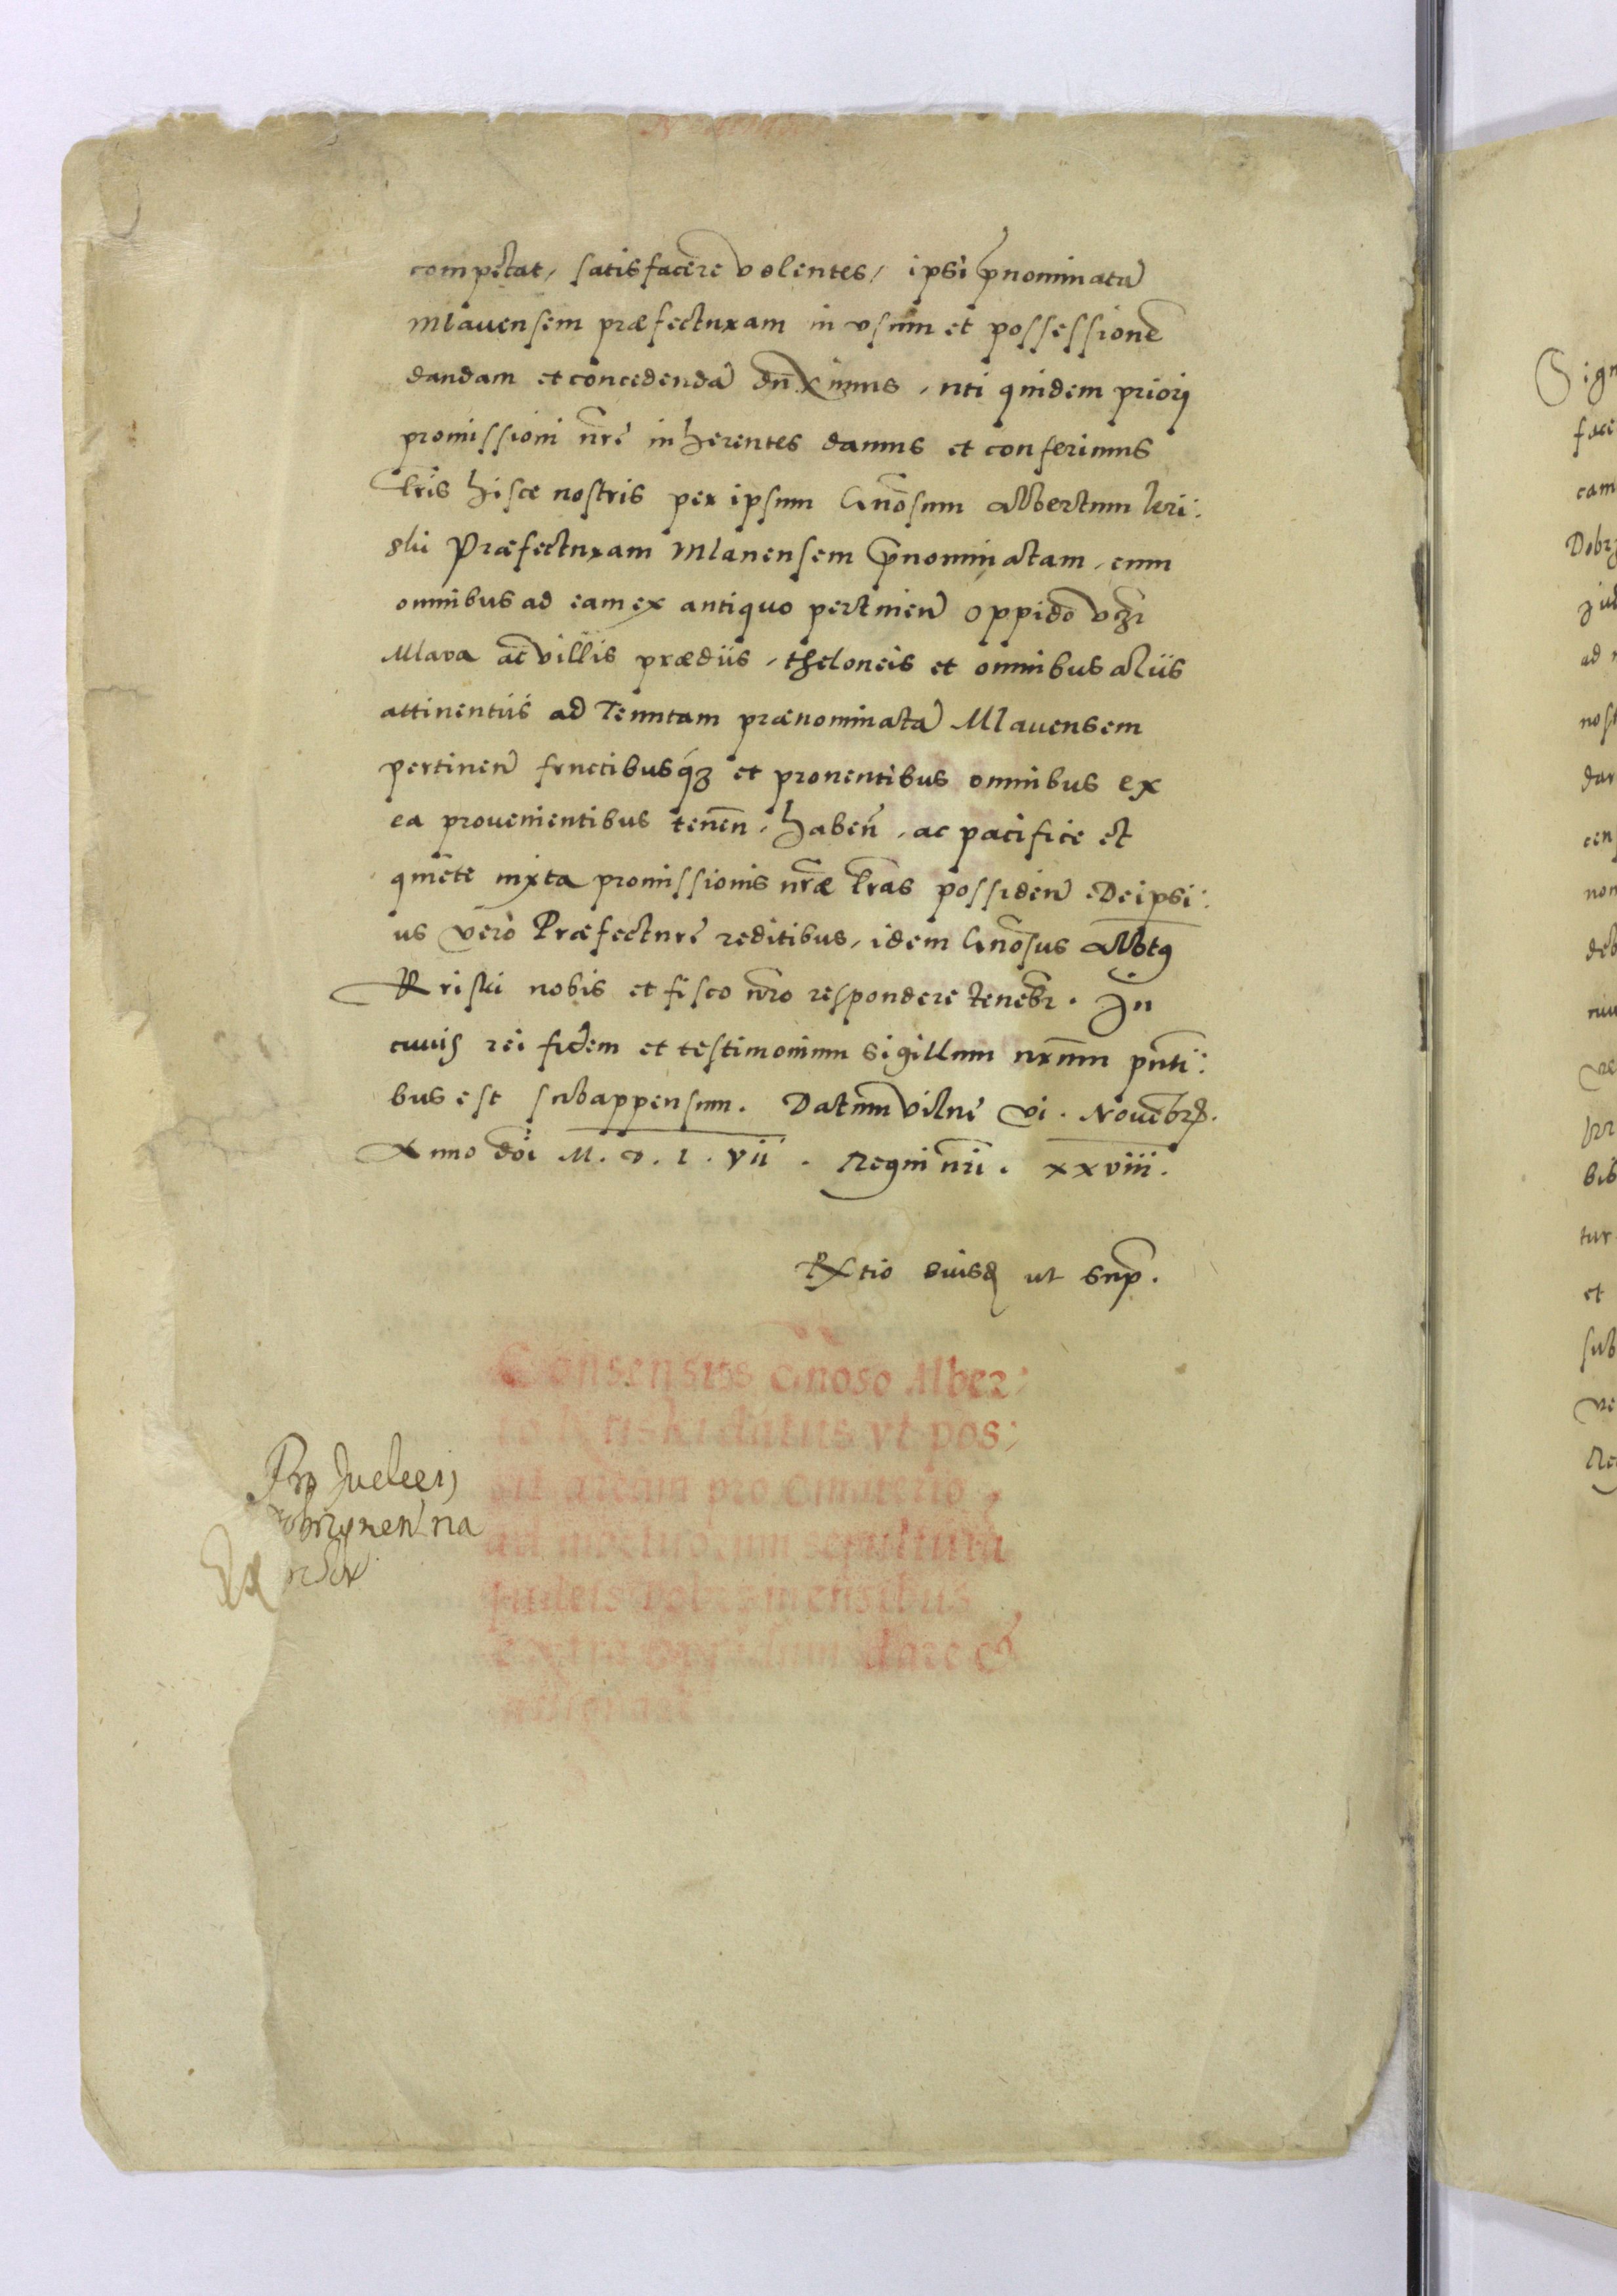 competat, satisfacere volentes, ipsi p̄nominatā
Mlauensem præfecturam in vsum et possessionē
dandam et concedendā duximus, uti quidem priori
promissioni nr̄ę inherentes damus et conferimus
lr̄is hisce nostris per ipsum Gn̄osum Albertum kri:
ski Præfecturam Mlauensem p̄nominatam, cum
omnibus ad eam ex antiquo pertinen̄ oppido vcz̄
Mlava ac villis prædiis, theloneis et omnibus aliis
attinentiis ad Tenutam prænominatā Mlauensem
pertinen̄ fructibusq́ꝫ et prouentibus omnibus ex
ea prouenientibus tenen̄, haben̄, ac pacifice et
quiete iuxta promissionis nr̄æ lr̄as possiden̄ De ipsi:
us vero Præfecturę reditibus, idem Gn̄osus Albt9
Kriski nobis et fisco nr̄o respondere tenebr̄. In
cuius rei fidem et testimonium sigillum nr̄um pn̄ti:
bus est subappensum. Datum Vilnę vi. Nouēbr̄.
Anno dōi M. D. L. vii. Regni nr̄i. xxviii.
Rltio eiusd ut sup̄.
Consensus Gn̄oso Alber:
to Kriski datus vt pos:
sit aream pro Cimiterio
ad mortuorum sepulturā
Judeis Dobrzinensibus
extra oppidum dare &
assignare.
Pro Judeis
Sign
face
cam
Dobrz
ad
nost
dar
cen
non
deb
ve
bib
tur
et
sub
ve
Re